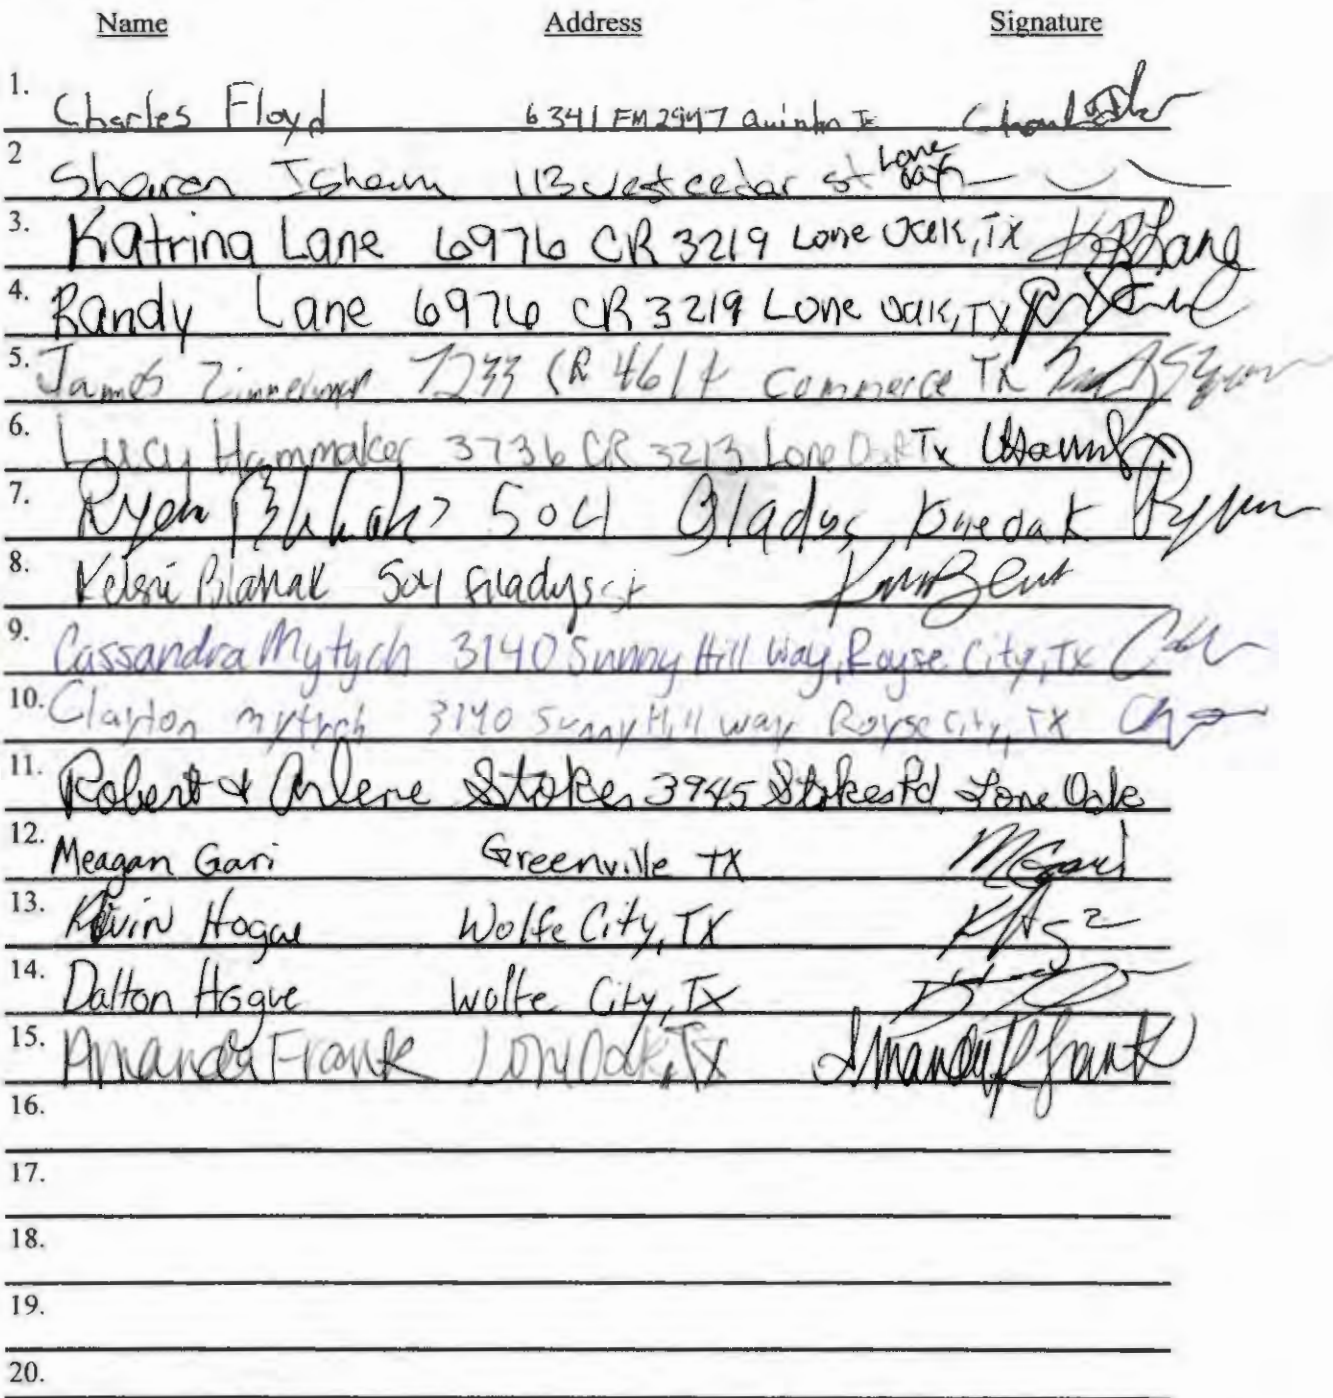 Name Address Signature
1. Charles Floyd 6341 FM 2947 Quinlan Tx
2 Sharon Isham 113 west cedar st Lone oak
3. Katrina Lane 6976 CR 3219 Lone Oak, TX KRLane
4. Randy Lane 6976 CR 3219 Lone Oak, TX
5. James Zimmerman 7233 CR 4614 Commerce TX
6. Lucy Hammaker 3736 CR 3213 Lone Oak Tx
7. Ryan 504 Gladys Loneoak Ryan
8. Kelsni Blahak 504 Gladys st
9. Cassandra Mytych 3140 Sunny Hill Way, Royse City, TX
10. Clayton mytych 3140 Sunny Hill way Royse City, TX
11. Robert & Arlene Stokes 3945 Stokes Rd. Lone Oak
12. Meagan Gari Greenville TX MGari
13. Kevin Hogue Wolfe City, TX
14. Dalton Hogue Wolfe City, TX
15. Amanda Frank Lone Oak, TX Amanda R Frank
16.
17.
18.
19.
20.